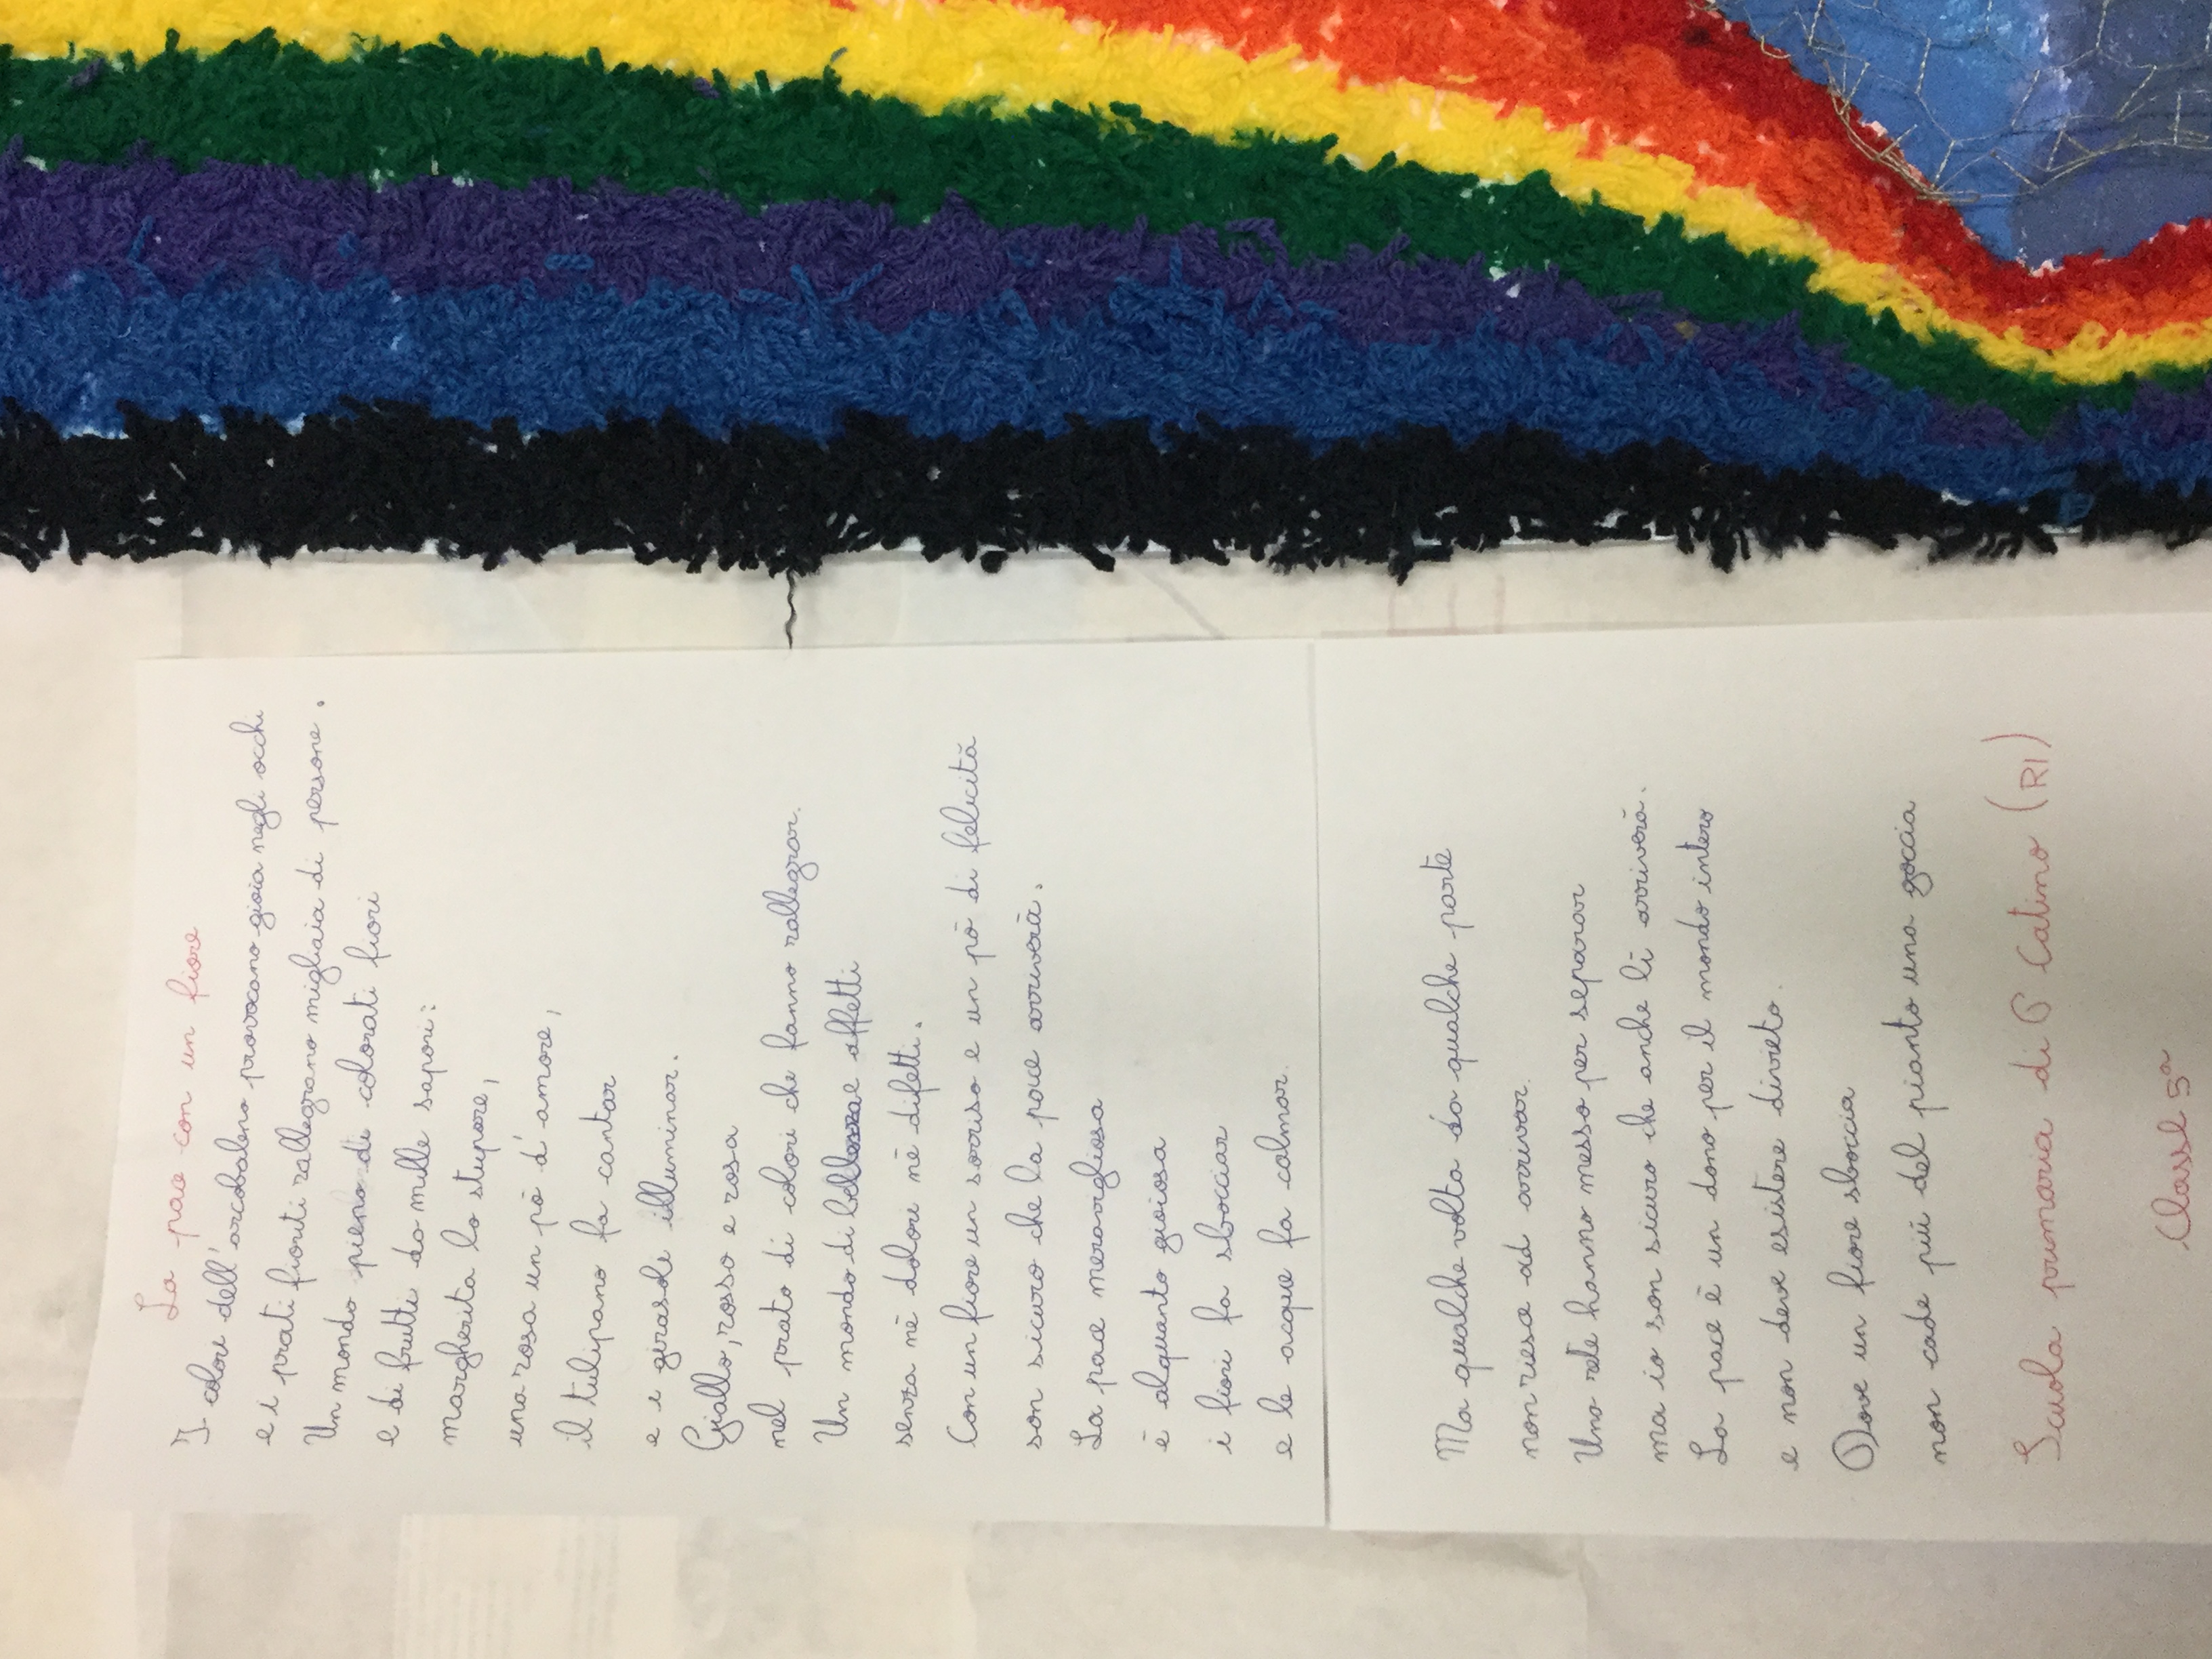 La pace con un fiore
I colori dell'arcobaleno provocano gioia negli occhi
e i prati fioriti rallegrano migliaia di persone.
Un mondo pieno di colorati fiori
e di frutti da mille sapori:
margherita lo stupore,
una rosa un pò d'amore,
il tulipano fa cantar
e i girasole illuminar.
Giallo, rosso e rosa
nel prato di colori che fanno rallegrar.
Un mondo di bellezza e affetti
senza nè dolori nè difetti.
Con un fiore un sorriso e un pò di felicità
son sicuro che la pace arriverà.
La pace meravigliosa
è alquanto gioiosa
i fiori fa sbocciar
e le acque fa calmar.
Ma qualche volta da qualche parte
non riesce ad arrivar.
Una rete hanno messo per separar
ma io son sicuro che anche lì arriverà.
La pace è un dono per il mondo intero
e non deve esistere divieto.
Dove un fiore sboccia
non cade più del pianto una goccia
Scuola primaria di P. Catino (RI)
Classe 5ª